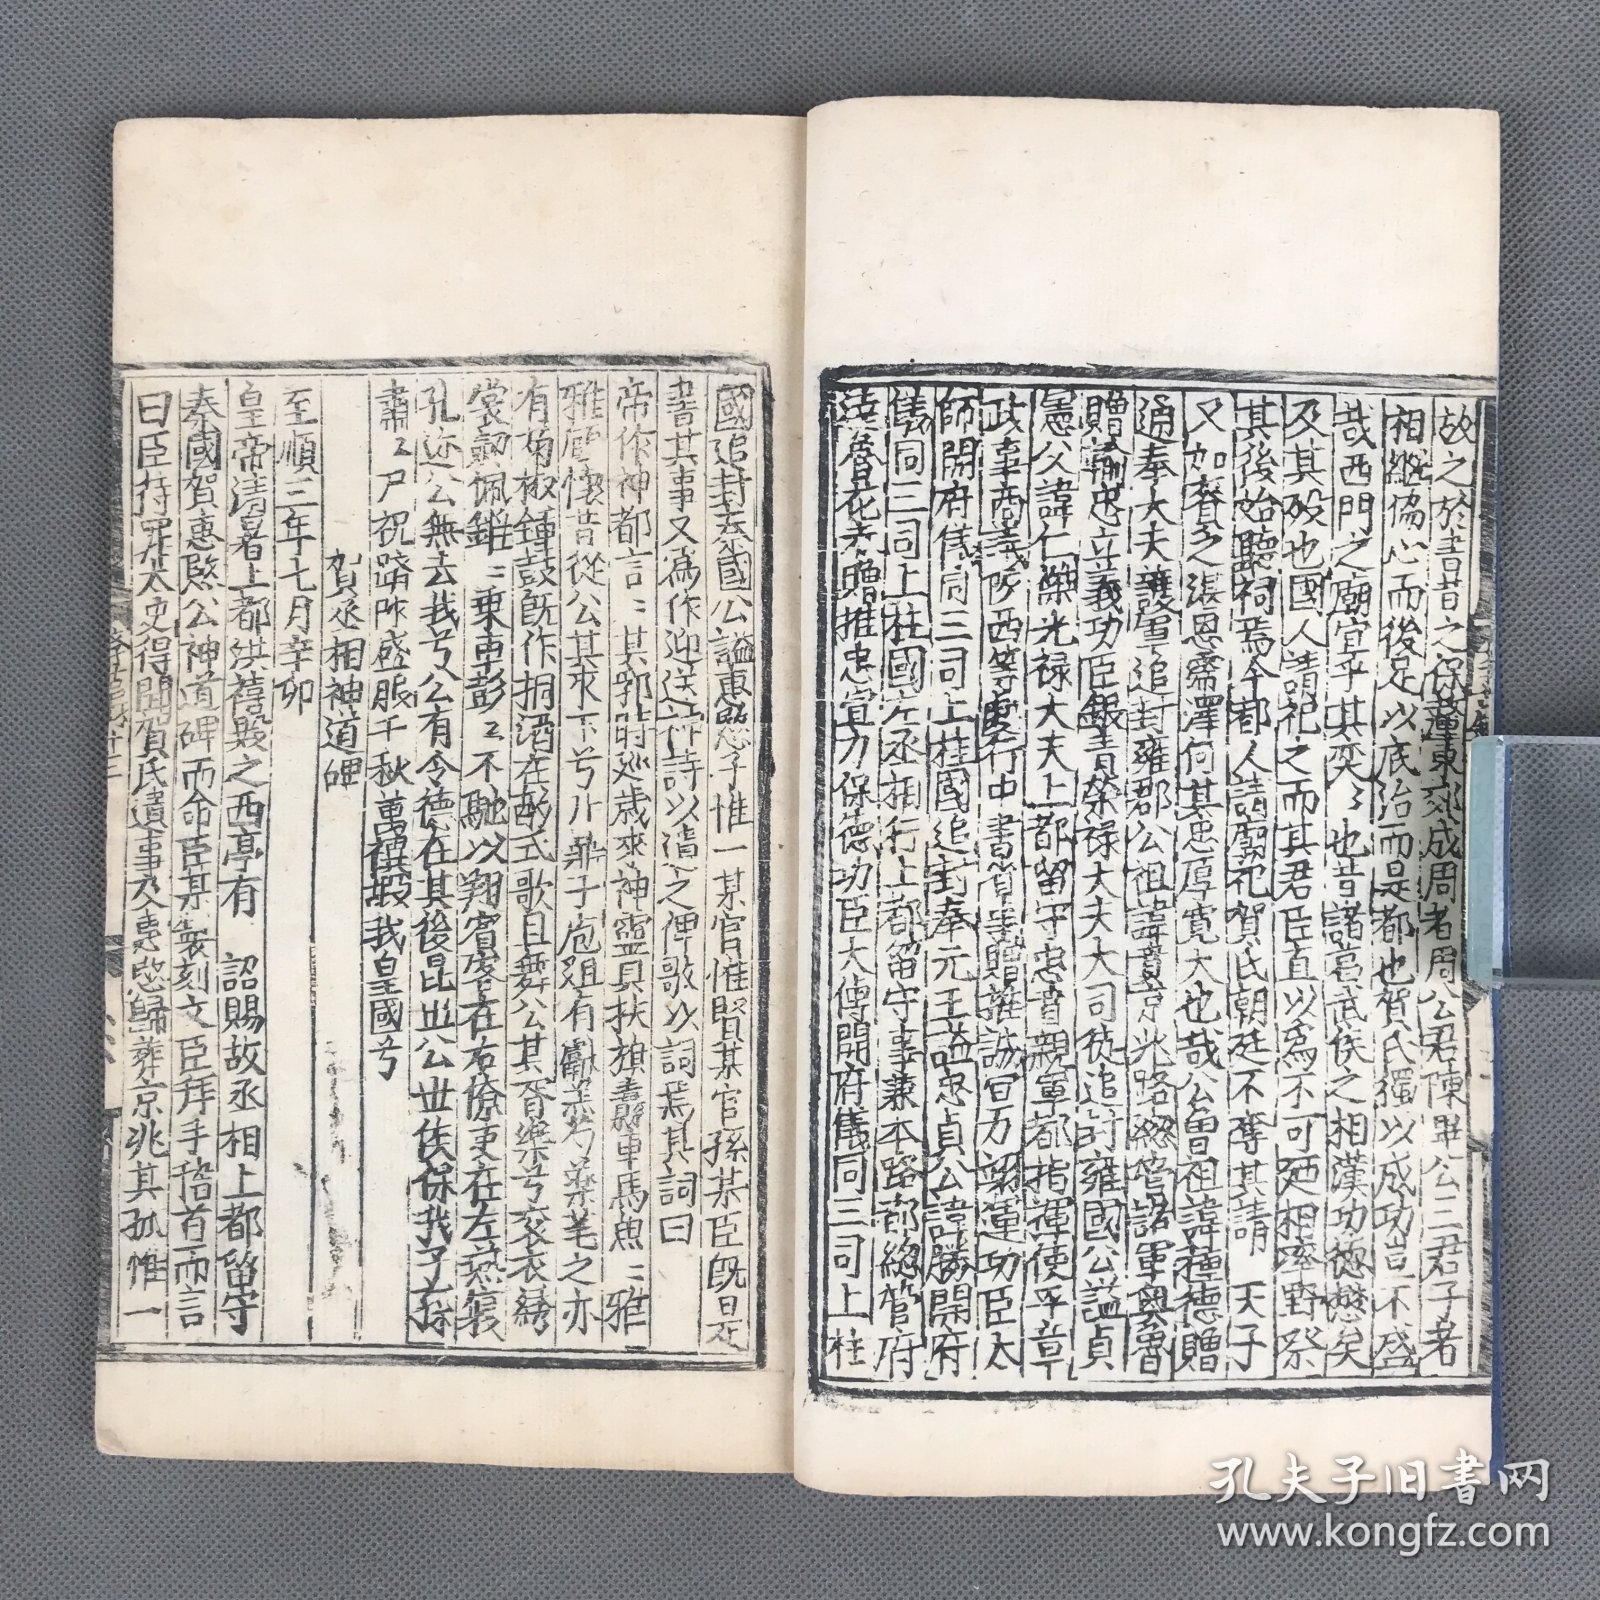 故之於書昔之保釐東郊成周者周公君陳畢公三君子者
相繼協心而後足以底治而是都也賀氏獨以成功豈不盛
哉西門之廟宜乎其奕〻也昔諸葛武侯之相漢功德懋矣
及其歿也國人請祀之而其君臣直以為不可廼相率野祭
其後始聽祠焉今都人請廟祀賀氏朝廷不奪其請　天子
又加眷之渥恩霈澤何其忠厚寬大也哉公曾祖諱種德贈
通奉大夫護軍追封雍郡公祖諱賁京兆路總管諸軍奧魯
贈輸忠立義功臣銀青榮祿大夫大司徒追封雍國公謚貞
憲父諱仁傑光祿大夫上都留守忠首親軍都指揮使平章
政事商議陝西等處行中書省事贈推誠宣力翊運功臣太
師開府儀同三司上柱國追封奉元王謚忠貞公諱勝開府
儀同三司上柱國左丞相行上都留守事兼本路都總管府
達魯花赤贈推忠宣力保德功臣太傅開府儀同三司上柱
國追封秦國公謚惠愍子惟一某官惟賢某官孫某臣既具
書其事又為作迎送神詩以遺之俾歌以詞焉其詞曰
帝作神都言〻其郛時巡歲來神靈具扶旗纛車馬魚〻雅
雅顧懷昔從公其來下兮
有菊椒鐘鼓既作桐酒在酌式歌且舞公其胥樂兮衮衣繡
裳劒佩鏘〻乘車彭〻不馳以翔賓客在右僚吏在左燕寢
孔邇公無去我兮公有令德在其後昆世公世侯保我子孫
肅〻尸祝躋阼盛服千秋萬禩報我皇國兮
賀丞相神道碑
至順三年七月辛卯
皇帝清暑上都洪禧殿之西亭有　詔賜故丞相上都留守
秦國賀惠愍公神道碑而命臣某篆刻文臣拜手稽首而言
曰臣待罪太史得聞賀氏遺事及惠愍歸葬京兆其孤惟一
孔夫子旧书网
www.kongfz.com